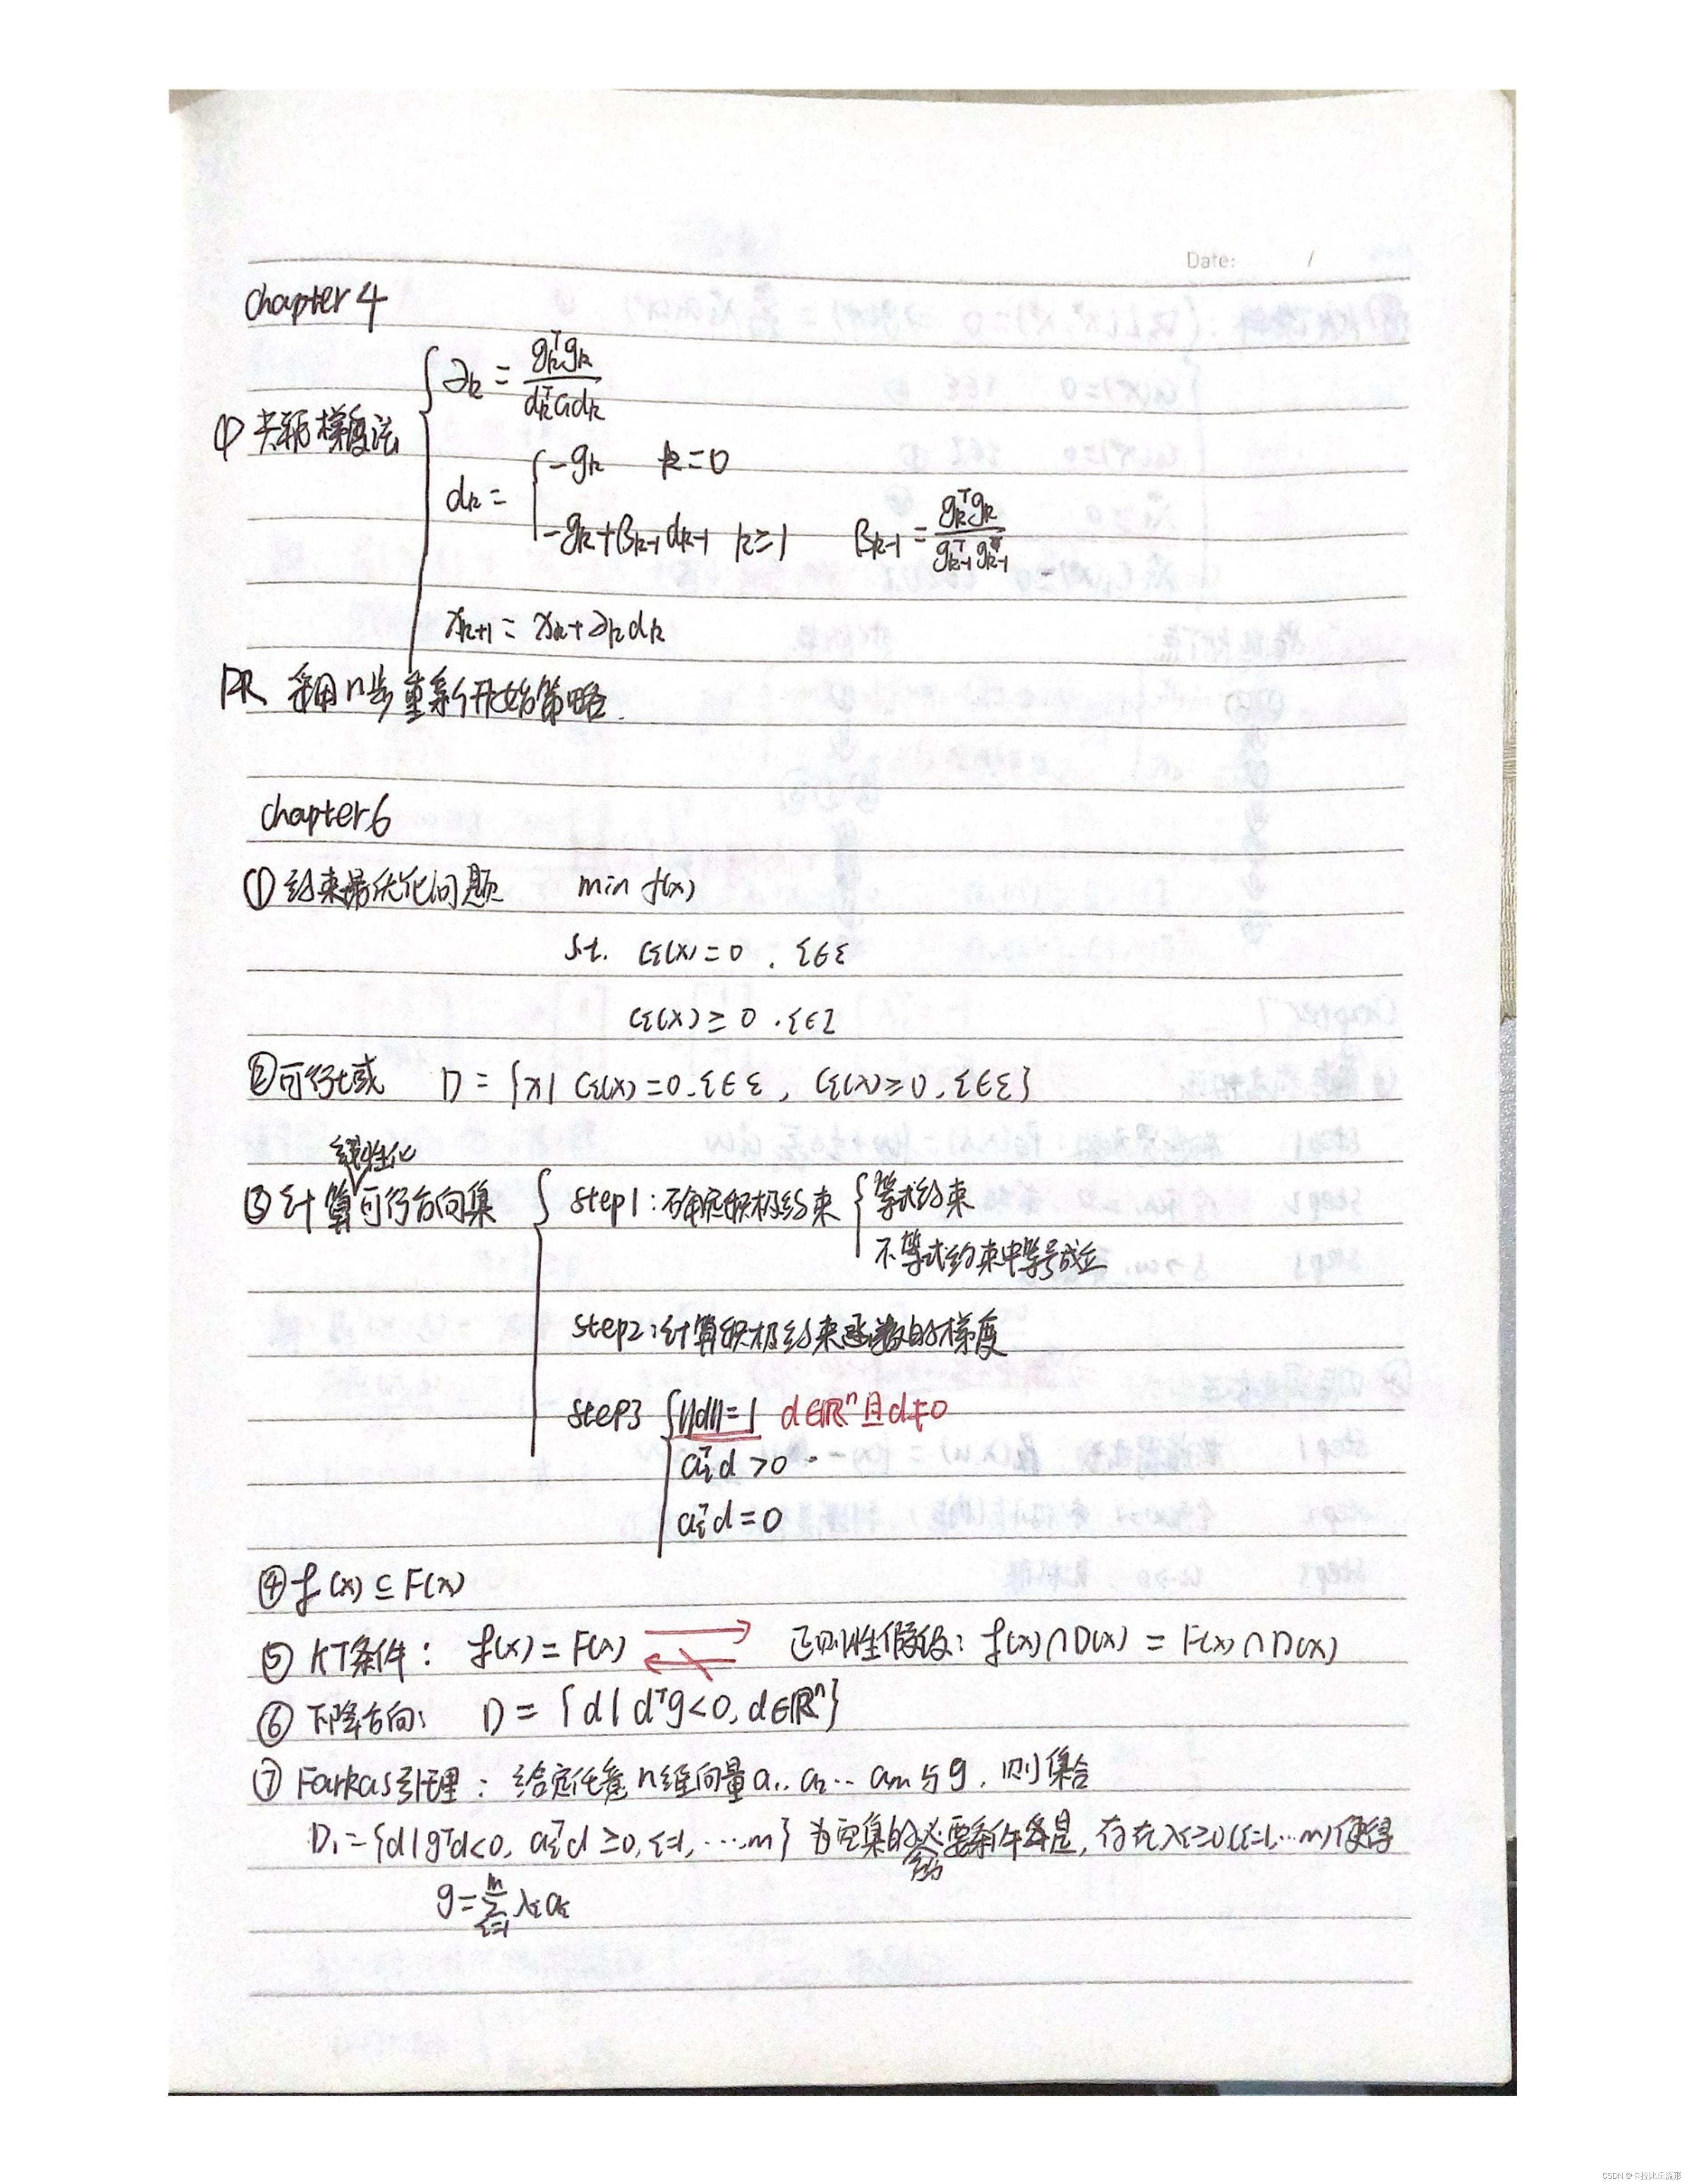 Date: /
chapter 4
① 共轭梯度法 { ∂k = gkᵀgk / dkᵀGdk
dk = { -gk k=0
-gk+βk-1dk-1 k≥1 βk-1 = gkᵀgk / gk-1ᵀgk-1
xk+1 = xk+∂kdk
PR 采用n步重新开始策略.
chapter 6
① 约束最优化问题 min f(x)
s.t. ci(x)=0 . i∈ε
ci(x)≥0 . i∈I
② 可行域 D = {x| ci(x)=0. i∈ε, ci(x)≥0. i∈ε}
线性化
③ 计算可行方向集 { step1:确定积极约束 { 等式约束
不等式约束中等号成立
step2:计算积极约束函数的梯度
step3 { ||d||=1 d∈ℝⁿ且d≠0
aiᵀd >0
aiᵀd =0
④ f(x) ⊆ F(x)
⑤ KT条件: f(x) = F(x) → ← 正则性假设: f(x)∩D(x) = F(x)∩D(x)
⑥ 下降方向: D = {d| dᵀg<0, d∈ℝⁿ}
⑦ Farkas引理: 给定任意n维向量a1. a2.. am与g. 则集合
D1={d|gᵀd<0, aiᵀd ≥0, i=1, ...m} 为空集的必要条件是, 存在λi≥0(i=1,...m)使得
充分
g=∑i=1m λiai
CSDN @卡拉比丘流形